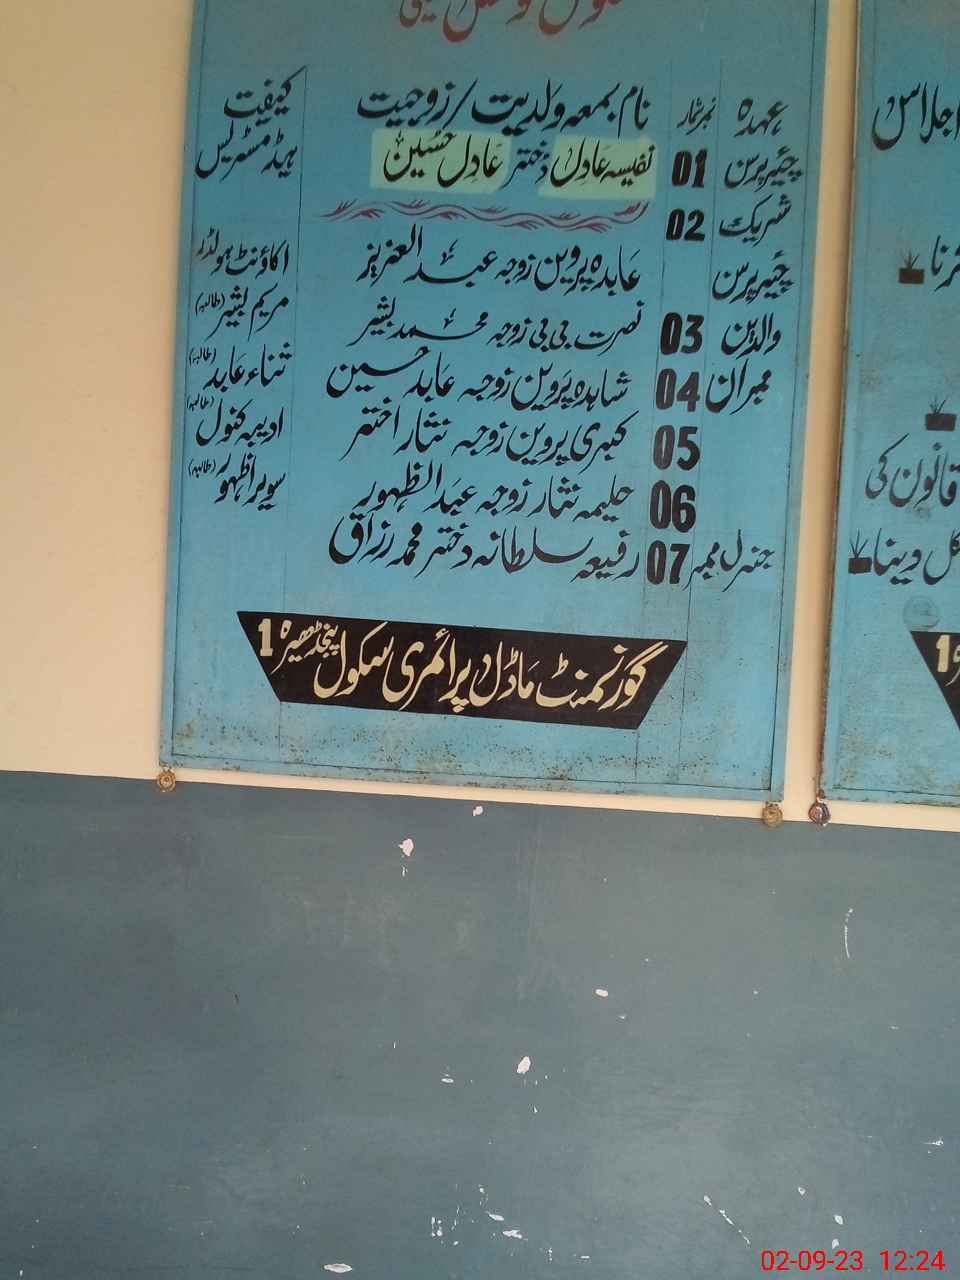 عہدہ نمبر شمار نام بمعہ ولدیت/زوجیت کیفیت
چئیرپرسن 01 نفیسہ عادل دختر عادل حسین ہیڈ مسٹریس
شریک 02
چئیرپرسن عابدہ پروین زوجہ عبدالعزیز اکاؤنٹ ہولڈر
والدین 03 نصرت بی بی زوجہ محمد بشیر مریم بشیر (طالبہ)
ممبران 04 شاہدہ پروین زوجہ عابد حسین ثناء عابد (طالبہ)
05 کبری پروین زوجہ نثار اختر ادیبہ کنول (طالبہ)
06 حلیمہ نثار زوجہ عبدالظہور سویرا ظہور (طالبہ)
جنرل ممبر 07 رفیعہ سلطانہ دختر محمد رزاق
گورنمنٹ ماڈل پرائمری سکول پنجڈھیرہ 1
اجلاس
قانون کی
دینا
1
02-09-23 12:24